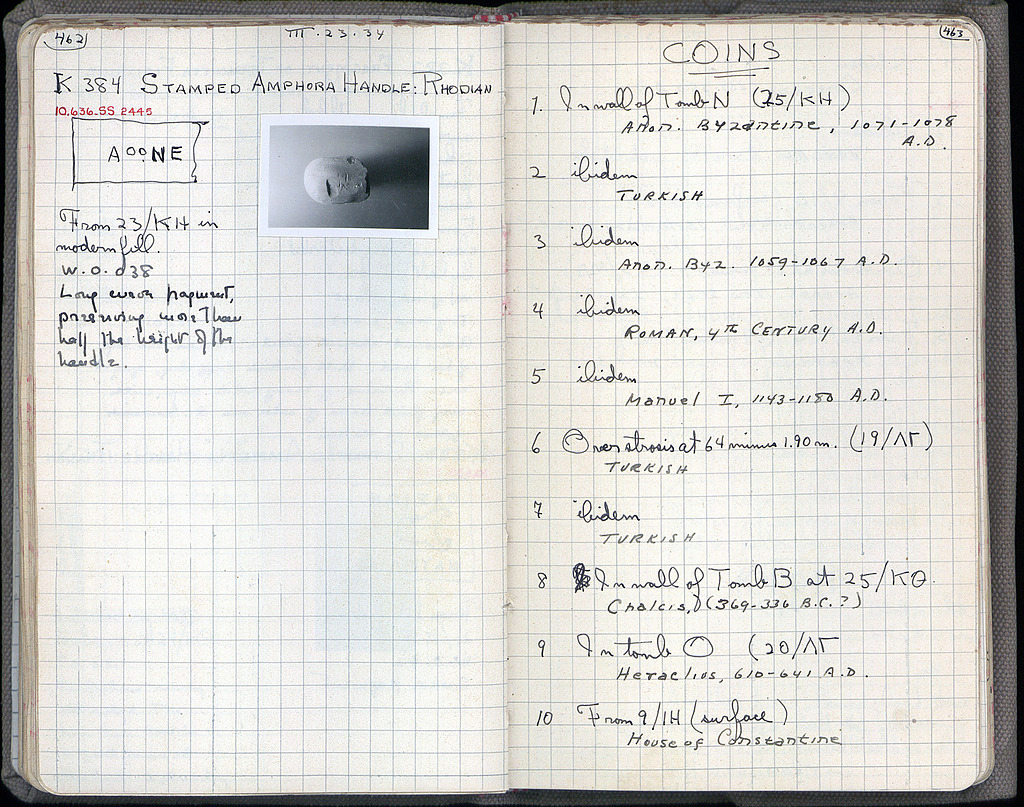 462
III.23.34
K 384 STAMPED AMPHORA HANDLE: RHODIAN
10.636.SS 2445
AOONE
From 23/KH in
modern fill.
W.O. d38
Long curva fragment,
preserving more than
half the height of the
handle.
463
COINS
1. In wall of Tomb N (25/KH)
Anon. Byzantine, 1071-1078
A.D.
2 ibidem
TURKISH
3 ibidem
Anon. Byz. 1059-1067 A.D.
4 ibidem
ROMAN, 4th CENTURY A.D.
5 ibidem
Manuel I, 1143-1180 A.D.
6 Over strosis at 64 minus 1.90 m. (19/ΛΓ)
TURKISH
7 ibidem
TURKISH
8 In wall of Tomb B at 25/KΘ
Chalcis, (369-336 B.C.?)
9 In tomb O (20/ΛΓ
Heraclius, 610-641 A.D.
10 From 9/IH (surface)
House of Constantine